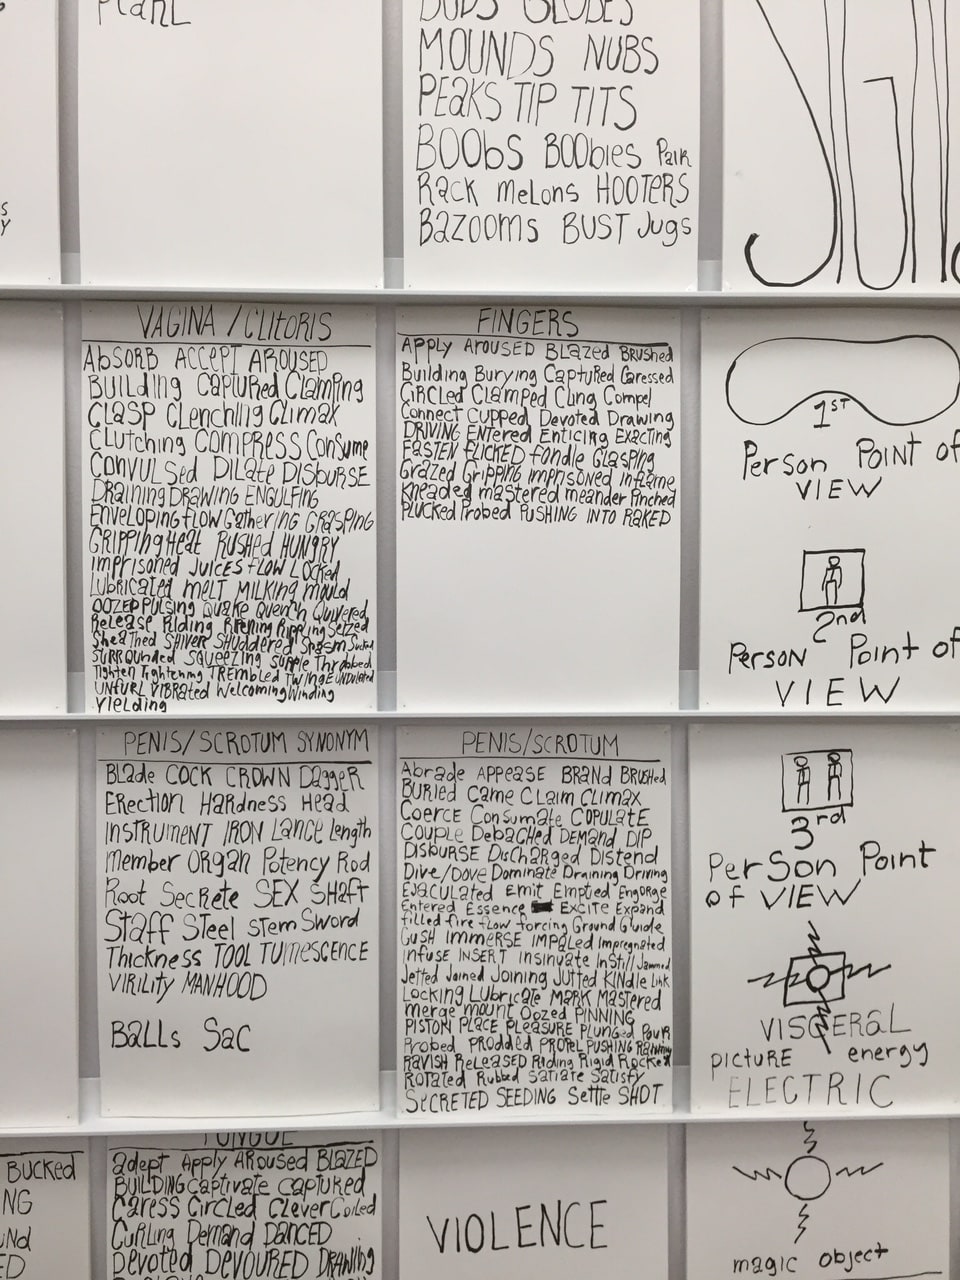 BUDS GLOBES
MOUNDS NUBS
PEAKS TIP TITS
BOObS BOObies Pair
Rack Melons HOOTERS
Bazooms BUST Jugs
VAGINA / CLITORIS
AbsORB ACCEPT AROUSED
BUILding CAPTURed Clamping
Clasp Clenching Climax
Clutching COMPRESS Consume
CONVULSed DILATE DISBURSE
DRaining DRAWING ENGULFING
ENVELOPING flow Gathering GRASPING
GRIPPING Heat RUSHED HUNGRY
Imprisoned JUICES FLOW LOCKED
Lubricated MELT MILKING Mould
OOZED PULSING Quake Quench Quivered
Release Riding Ripening Rippling Seized
Sheathed SHIVER Shuddered Spasm Sucked
SURROUNDED SQUEEZING SUPPLE Throbbed
Tighten Tightening TREMbled TWINGE UNDULATED
UNFURL VIBRATED Welcoming Winding
YIELding
FINGERS
APPLY AROUSED BLAZED BRUSHED
Building Burying CAPTURED Caressed
CIRCLED CLAMPED Cling Compel
Connect CUPPED Devoted Drawing
DRIVING ENTERED Enticing EXACTING
FASTEN FLICKED Fondle GLASPING
Grazed Gripping Imprisoned Inflame
Kneaded mastered meander Pinched
PLUCKED Probed PUSHING INTO RAKED
1ST
Person POINT of
VIEW
2nd
PERSON Point of
VIEW
PENIS/SCROTUM SYNONYM
BLade COCK CROWN DaggeR
ERection Hardness Head
INSTRUMENT IRON Lance Length
Member ORgan Potency Rod
Root Secrete SEX SHAFT
Staff Steel Stem Sword
Thickness TOOL TUMESCENCE
VIRILITY MANHOOD
BALLS SAC
PENIS/SCROTUM
Abrade APPEASE BRAND BRUSHED
BURIED CAME CLAIM CLIMAX
Coerce Consumate COPULATE
COUPLE Debached DEMAND DIP
DISBURSE Discharged Distend
Dive/DOVE Dominate Draining Driving
EJACULATED Emit Emptied Engorge
Entered Essence EXCITE EXPAND
filled fire flow forcing Ground Guide
GUSH IMMERSE IMPALED Impregnated
INFUSE INSERT Insinuate Instill Jammed
Jetted Joined Joining Jutted KINdle Link
Locking Lubricate MARK MASTERED
merge mount Oozed PINNING
PISTON PLACE PLEASURE PLUNGED POUR
Probed PRODDED PROPEL PUSHING
RAVISH RELEASED Riding Rigid Rocked
ROTATED Rubbed SATIATE SATISFY
SECRETED SEEDING Settle SHOT
3rd
PERSON Point
of VIEW
VISCERAL
PICTURE energy
ELECTRIC
BUCKED
TONGUE
adept Apply AROUSED BLAZED
BUILDING Captivate captured
Caress Circled CLEVER Coiled
Curling Demand DANCED
Devoted DEVOURED DRAWING
VIOLENCE
magic object